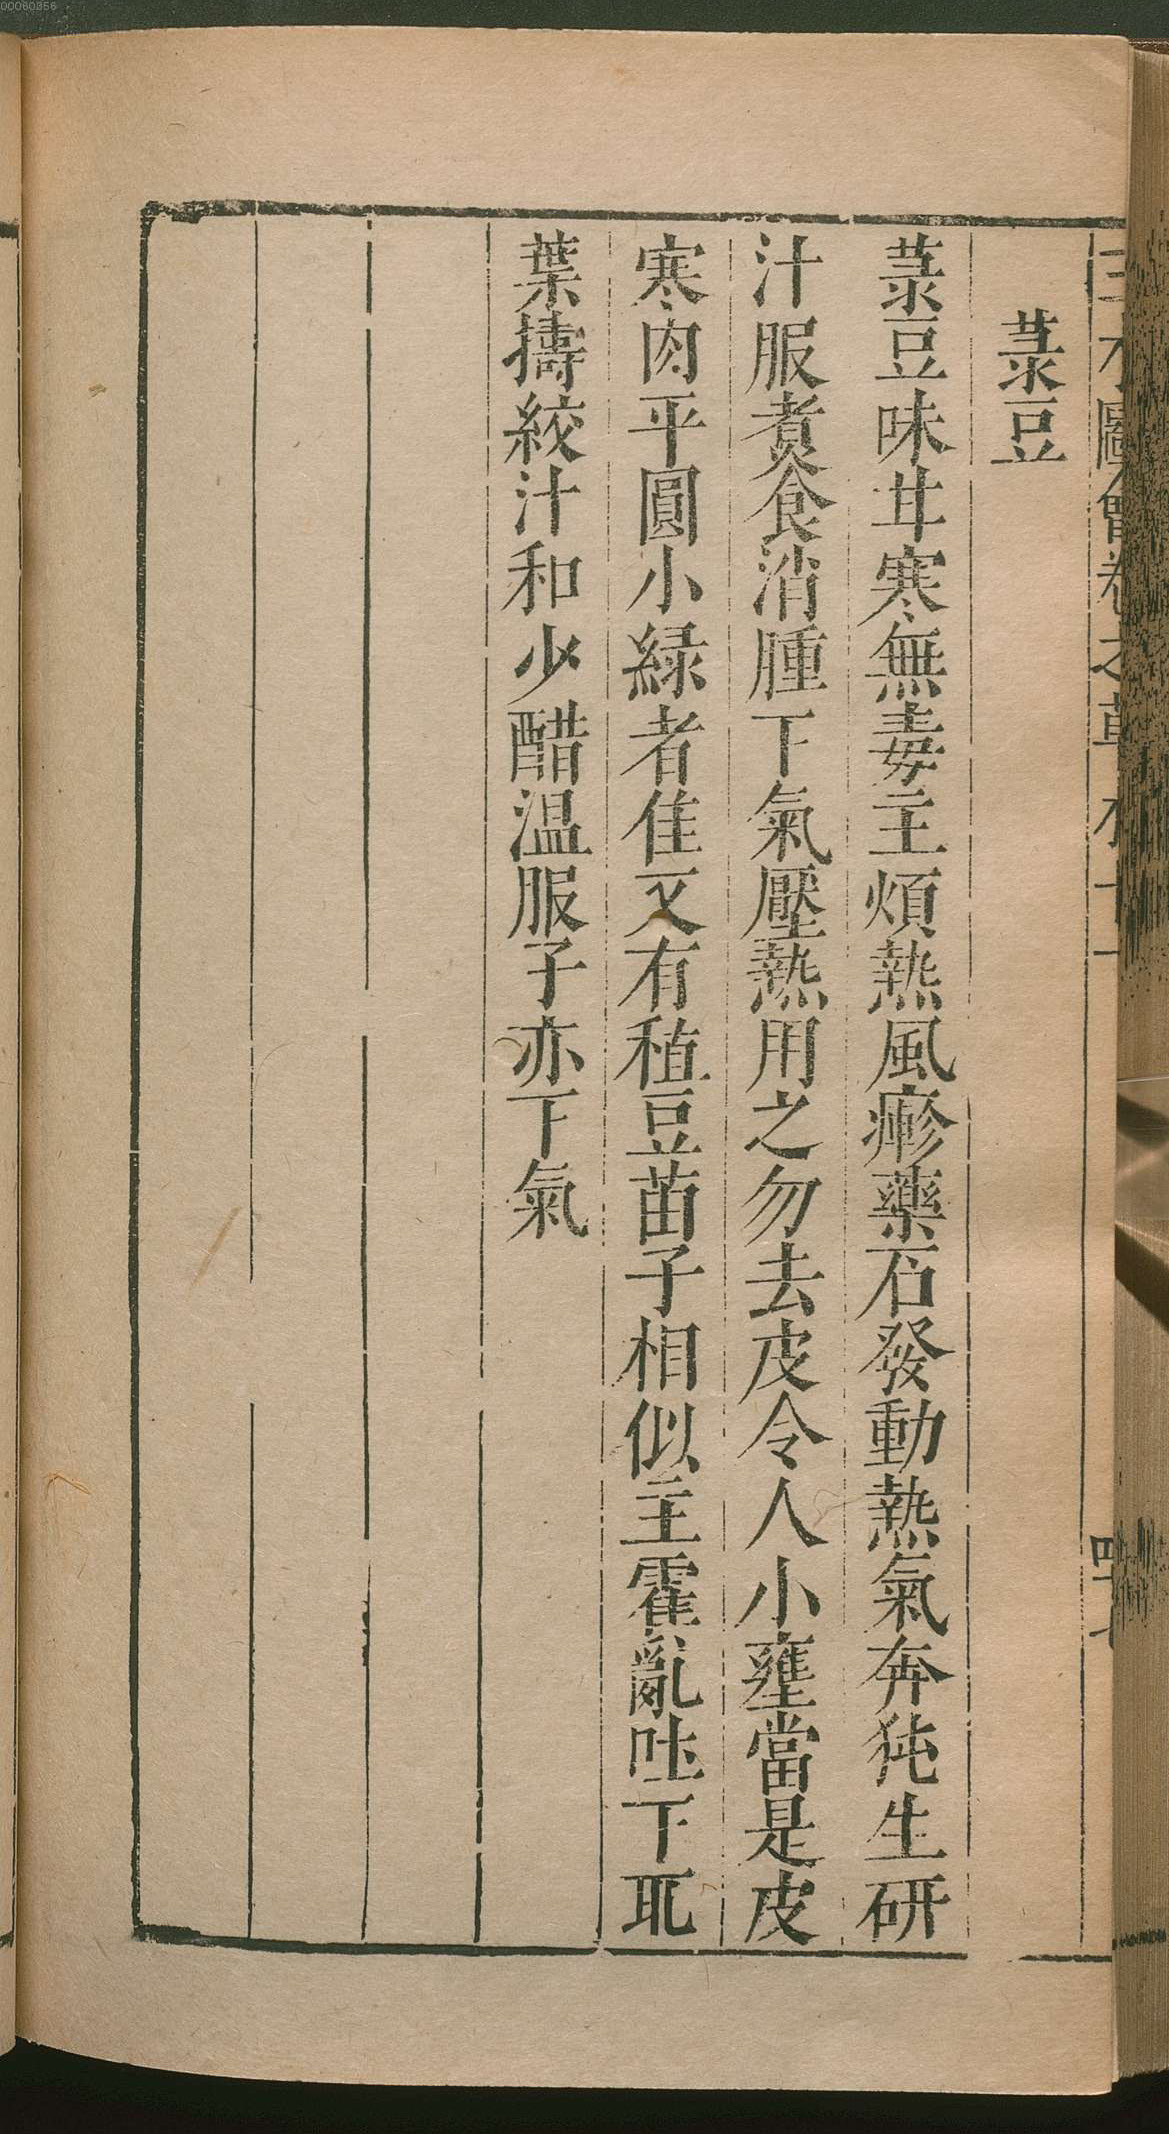 菉豆
菉豆味甘寒無毒主煩熱風瘮藥石發動熱氣奔㹠生研
汁服煮食消腫下氣壓熱用之勿去皮令人小壅當是皮
寒肉平圓小緑者佳又有稙豆苗子相似主霍亂吐下取
葉擣絞汁和少醋温服子亦下氣
00060356